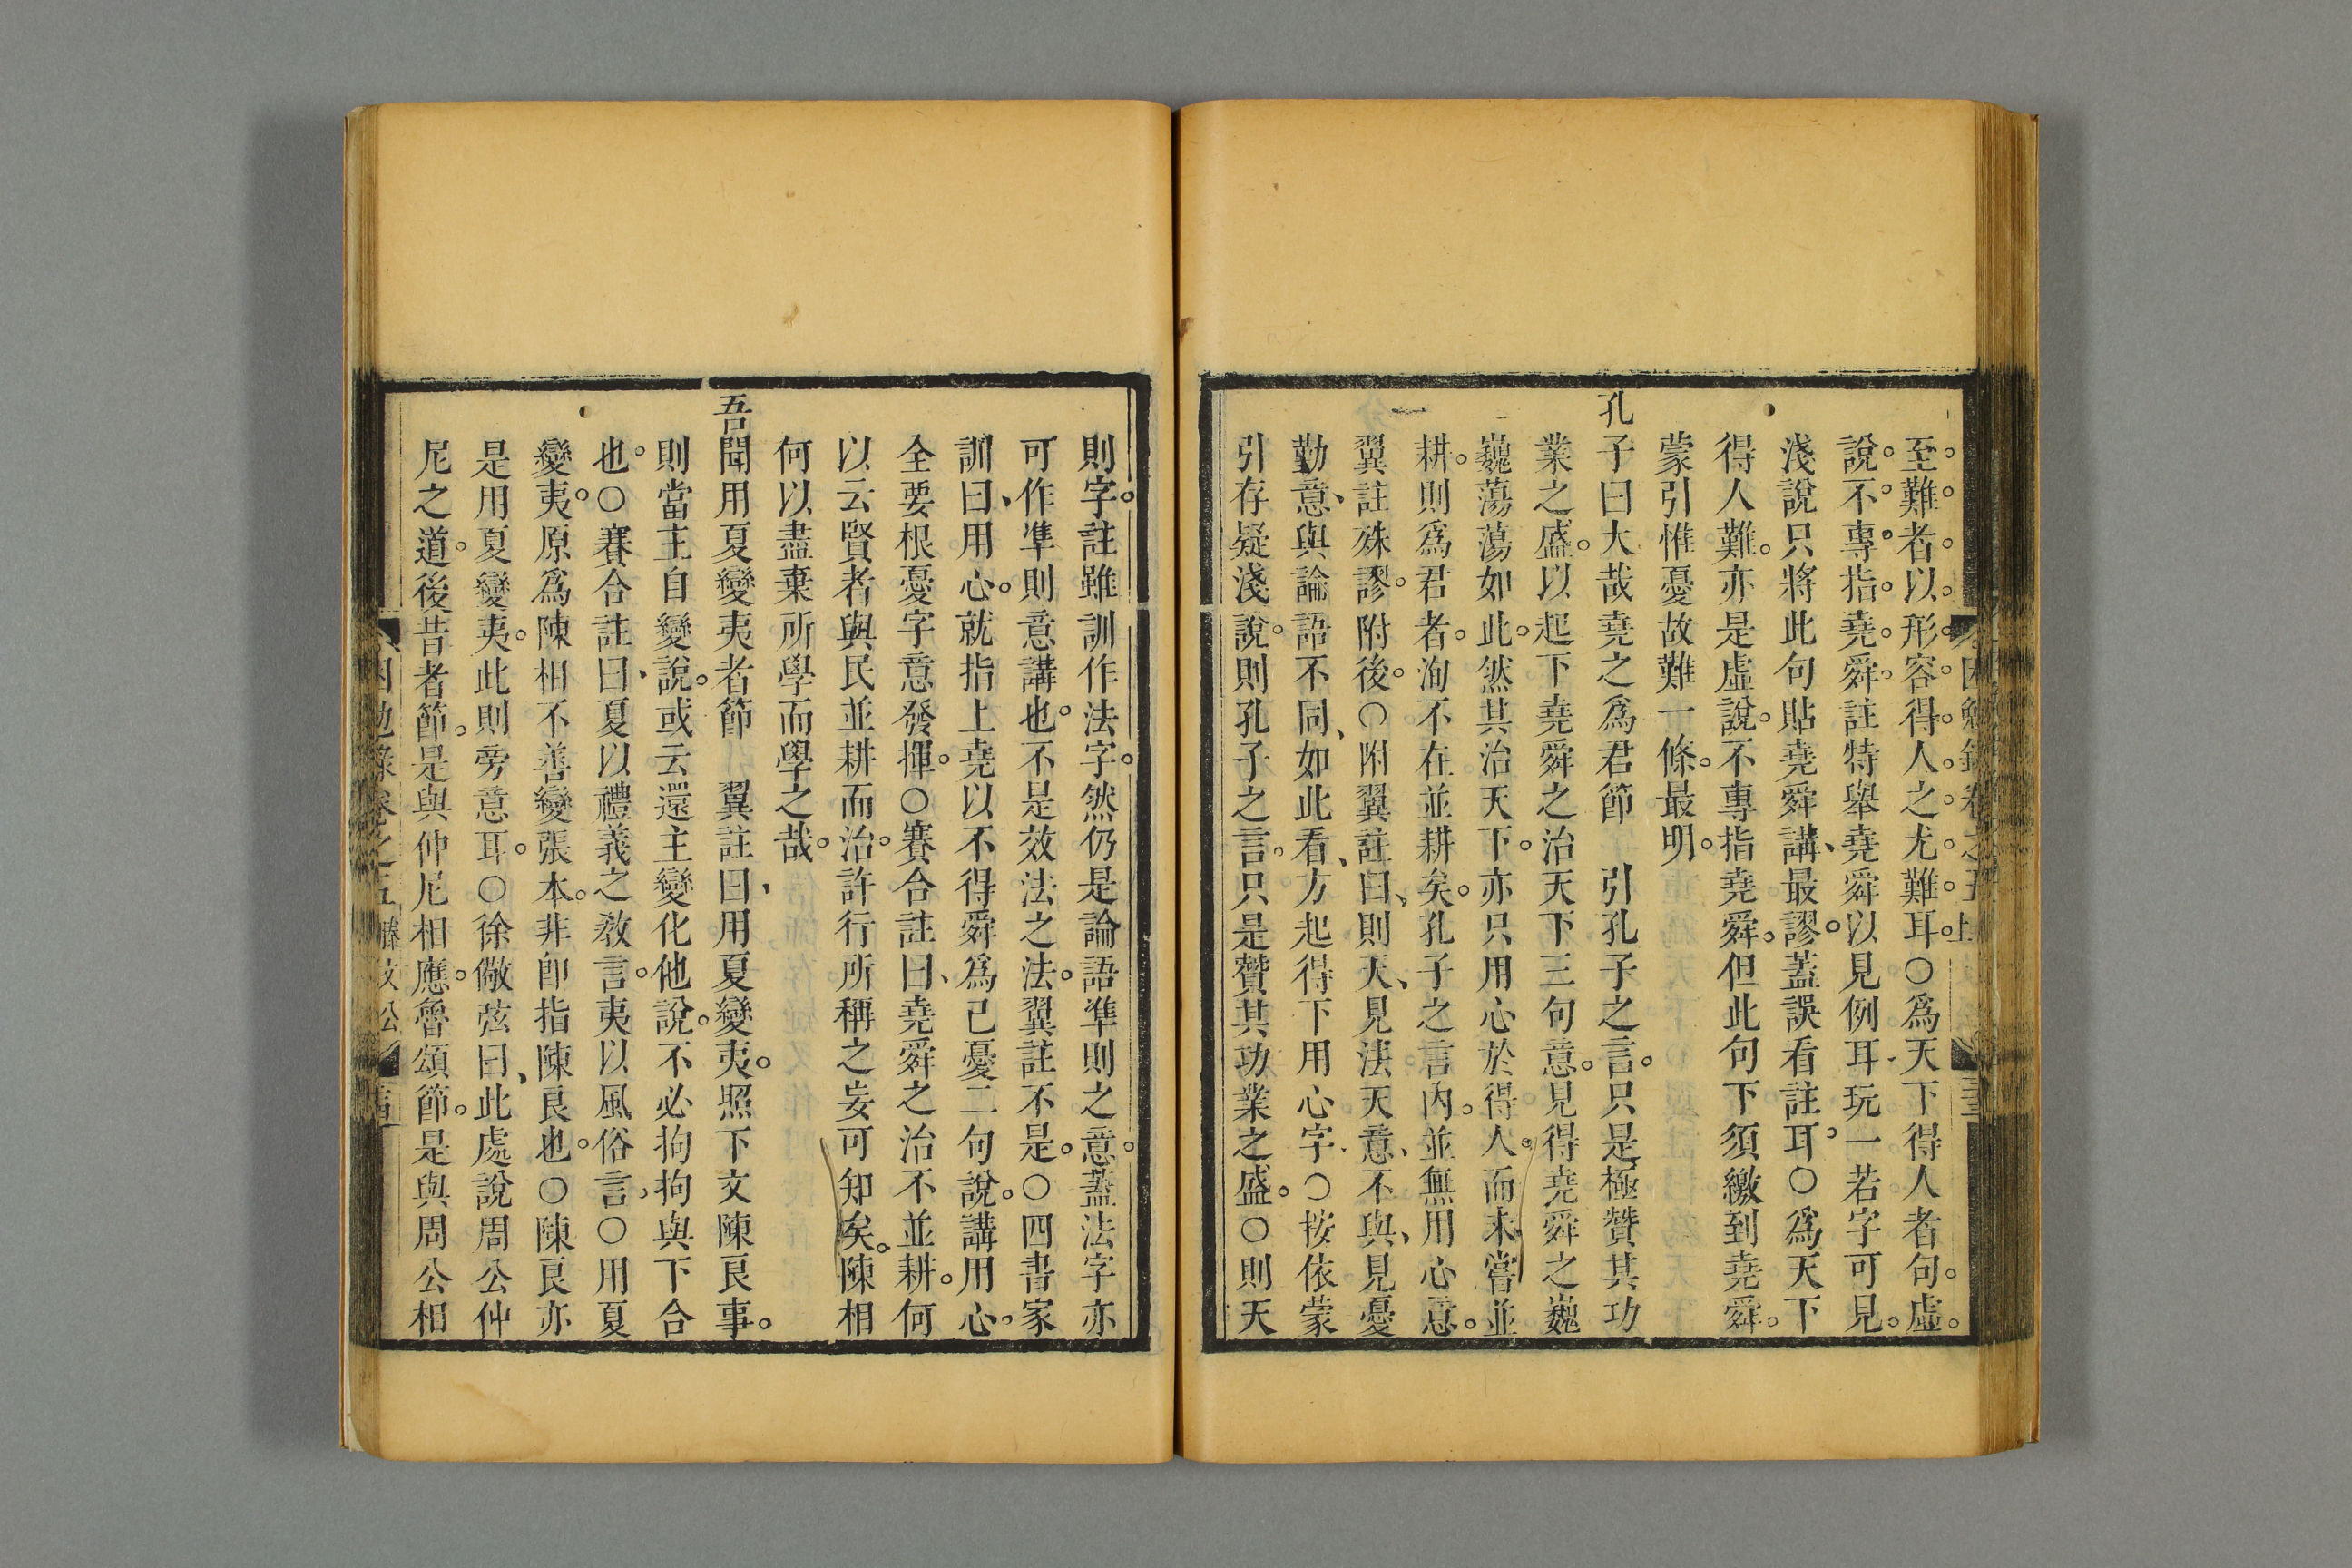 至難者以形容得人之尤難耳○爲天下得人者句虛
說不專指堯舜註特舉堯舜以見例耳玩一若字可見
淺說只將此句貼堯舜講最謬蓋誤看註耳○爲天下
得人難亦是虛說不專指堯舜但此句下須繳到堯舜
蒙引惟憂故難一條最明
孔子曰大哉堯之爲君節　引孔子之言只是極贊其功
業之盛以起下堯舜之治天下三句意見得堯舜之巍
巍蕩蕩如此然其治天下亦只用心於得人而未嘗並
耕則爲君者洵不在並耕矣孔子之言內並無用心意
翼註殊謬附後○附翼註曰則天見法天意不與見憂
勤意與論語不同如此看方起得下用心字○按依蒙
引存疑淺說則孔子之言只是贊其功業之盛○則天
則字註雖訓作法字然仍是論語準則之意蓋法字亦
可作準則意講也不是效法之法翼註不是○四書家
訓曰用心就指上堯以不得舜爲己憂二句說講用心
全要根憂字意發揮○賽合註曰堯舜之治不並耕何
以云賢者與民並耕而治許行所稱之妄可知矣陳相
何以盡棄所學而學之哉
吾聞用夏變夷者節　翼註曰用夏變夷照下文陳良事
則當主自變說或云還主變化他說不必拘拘與下合
也○賽合註曰夏以禮義之教言夷以風俗言○用夏
變夷原爲陳相不善變張本非卽指陳良也○陳良亦
是用夏變夷此則旁意耳○徐儆弦曰此處說周公仲
尼之道後昔者節是與仲尼相應魯頌節是與周公相